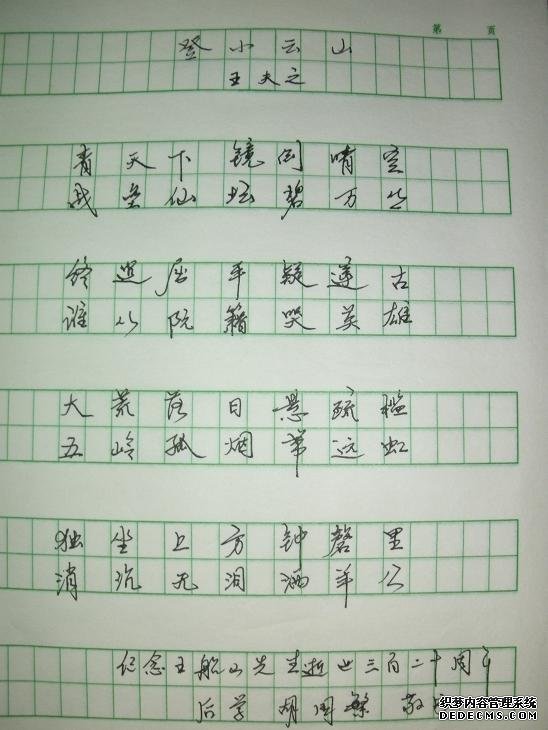 第 页
登小云山
王夫之
青天下镜倒晴空
战垒仙坛碧万丛
终遣屈平疑邃古
谁从阮籍哭英雄
大荒落日悬疏槛
五岭孤烟带远虹
独坐上方钟磬里
消沉无泪洒羊公
纪念王船山先生逝世三百二十周年
后学 胡国繁 敬
织梦内容管理系统
DEDECMS.COM